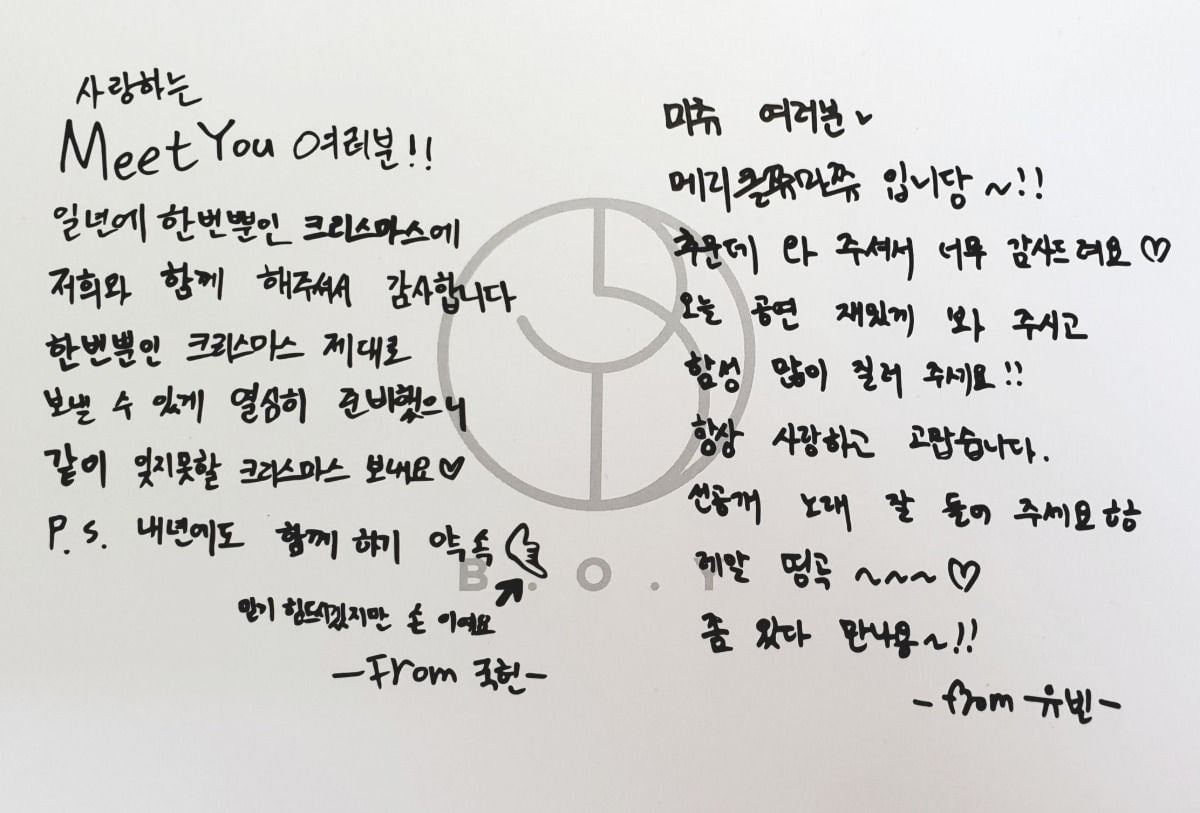 사랑하는
Meet You 여러분!!
일년에 한번뿐인 크리스마스에
저희와 함께 해주셔서 감사합니다
한번뿐인 크리스마스 제대로
보낼 수 있게 열심히 준비했으니
같이 잊지못할 크리스마스 보내요♡
P.S. 내년에도 함께 하기 약속
믿기 힘드시겠지만 손 이예요
-From 국헌-
미츄 여러분
메리큰쮸마쮸 입니당~!!
추운데 와 주셔서 너무 감사드려요♡
오늘 공연 재밌게 봐 주시고
함성 많이 질러 주세요!!
항상 사랑하고 고맙습니다.
선공개 노래 잘 들어 주세요ㅎㅎ
레알 띵곡 ~~~♡
좀 있다 만나용~!!
-from 유빈-
B.O.Y